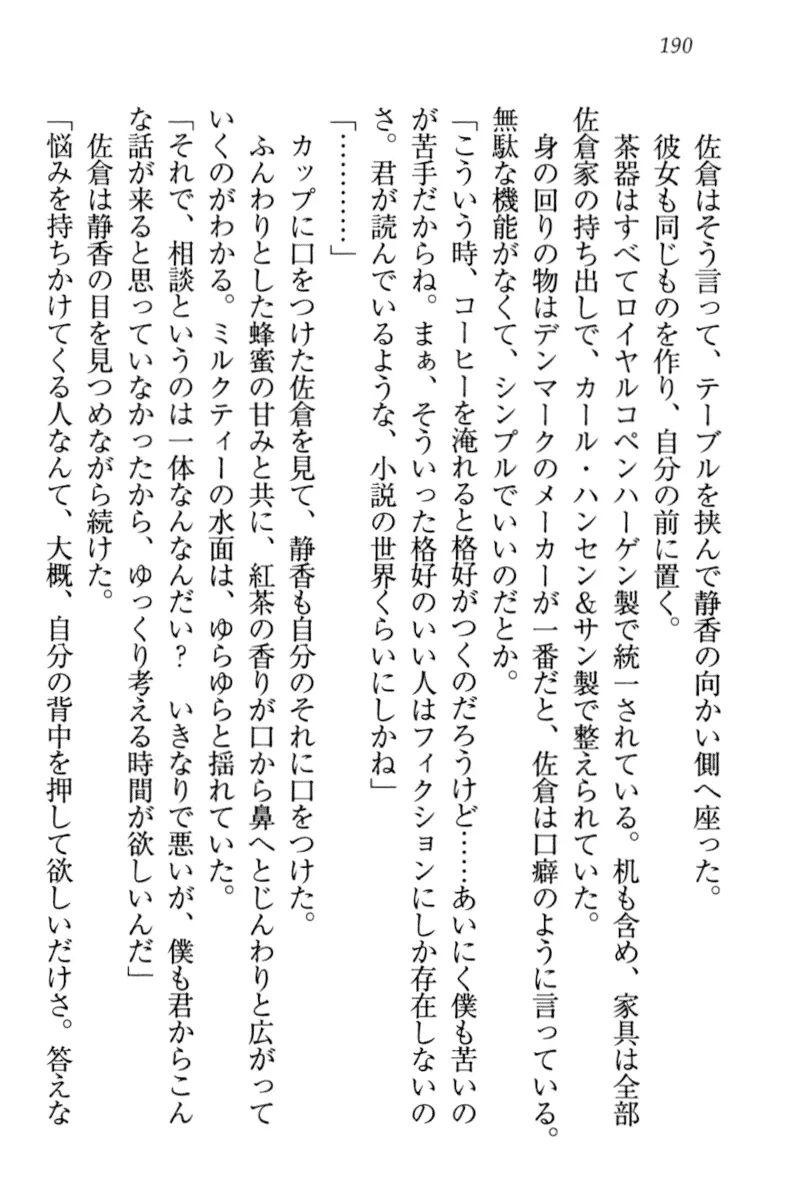 190
佐倉はそう言って、テーブルを挟んで静香の向かい側へ座った。
彼女も同じものを作り、自分の前に置く。
茶器はすべてロイヤルコペンハーゲン製で統一されている。机も含め、家具は全部
佐倉家の持ち出しで、カール・ハンセン&サン製で整えられていた。
身の回りの物はデンマークのメーカーが一番だと、佐倉は口癖のように言っている。
無駄な機能がなくて、シンプルでいいのだとか。
「こういう時、コーヒーを淹れると格好がつくのだろうけど……あいにく僕も苦いの
が苦手だからね。まぁ、そういった格好のいい人はフィクションにしか存在しないの
さ。君が読んでいるような、小説の世界くらいにしかね」
「…………」
カップに口をつけた佐倉を見て、静香も自分のそれに口をつけた。
ふんわりとした蜂蜜の甘みと共に、紅茶の香りが口から鼻へとじんわりと広がって
いくのがわかる。ミルクティーの水面は、ゆらゆらと揺れていた。
「それで、相談というのは一体なんなんだい?　いきなりで悪いが、僕も君からこん
な話が来ると思っていなかったから、ゆっくり考える時間が欲しいんだ」
佐倉は静香の目を見つめながら続けた。
「悩みを持ちかけてくる人なんて、大概、自分の背中を押して欲しいだけさ。答えな